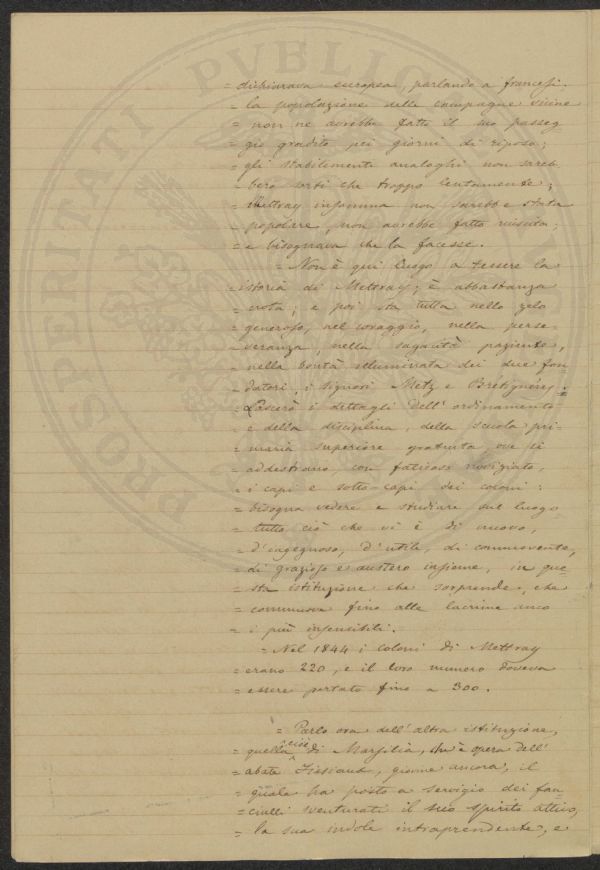 = dichiarava europea, parlando a francesi.
= la popolazione delle campagne vicine
= non ne avrebbe fatto il suo passeg
= gio gradito pei giorni di riposo;
= gli stabilimenti analoghi non sareb
= bero sorti che troppo lentamente;
= Mettray insomma non sarebbe stata
= popolare, non avrebbe fatto riuscita;
= e bisognava che la facesse.
= Non è qui luogo a tessere la
= istoria di Mettray; è abbastanza
= nota; e poi sta tutta nello zelo
= generoso, nel coraggio, nella perse-
= veranza, nella sagacità paziente,
= nella bontà illuminata dei due fon
= datori, i signori Metz e Bretignères.
= Lascerò i dettagli dell' ordinamento
= e della disciplina, della scuola pri-
= maria superiore gratuita ove si
= addestrano, con faticoso noviziato,
= i capi e sotto-capi dei coloni:
= bisogna vedere e studiare sul luogo
= tutto ciò che vi è di nuovo,
= d'ingegnoso, d'utile, di commovente,
= di grazioso e austero insieme, in que-
= sta istituzione che sorprende, che
= commuove fino alle lacrime anco
= i più insensibili.
= Nel 1844 i coloni di Mettray
= erano 220, e il loro numero doveva
= essere portato fino a 300.
= Parlo ora dell' altra istituzione,
= quella cioè di Marsilia, che è opera dell'
= abate Fissiaux, giovine ancora, il
= quale ha posto a servigio dei fan
= ciulli sventurati il suo spirito attivo,
= la sua indole intraprendente, e
PROSPERITATI PVBLICAE